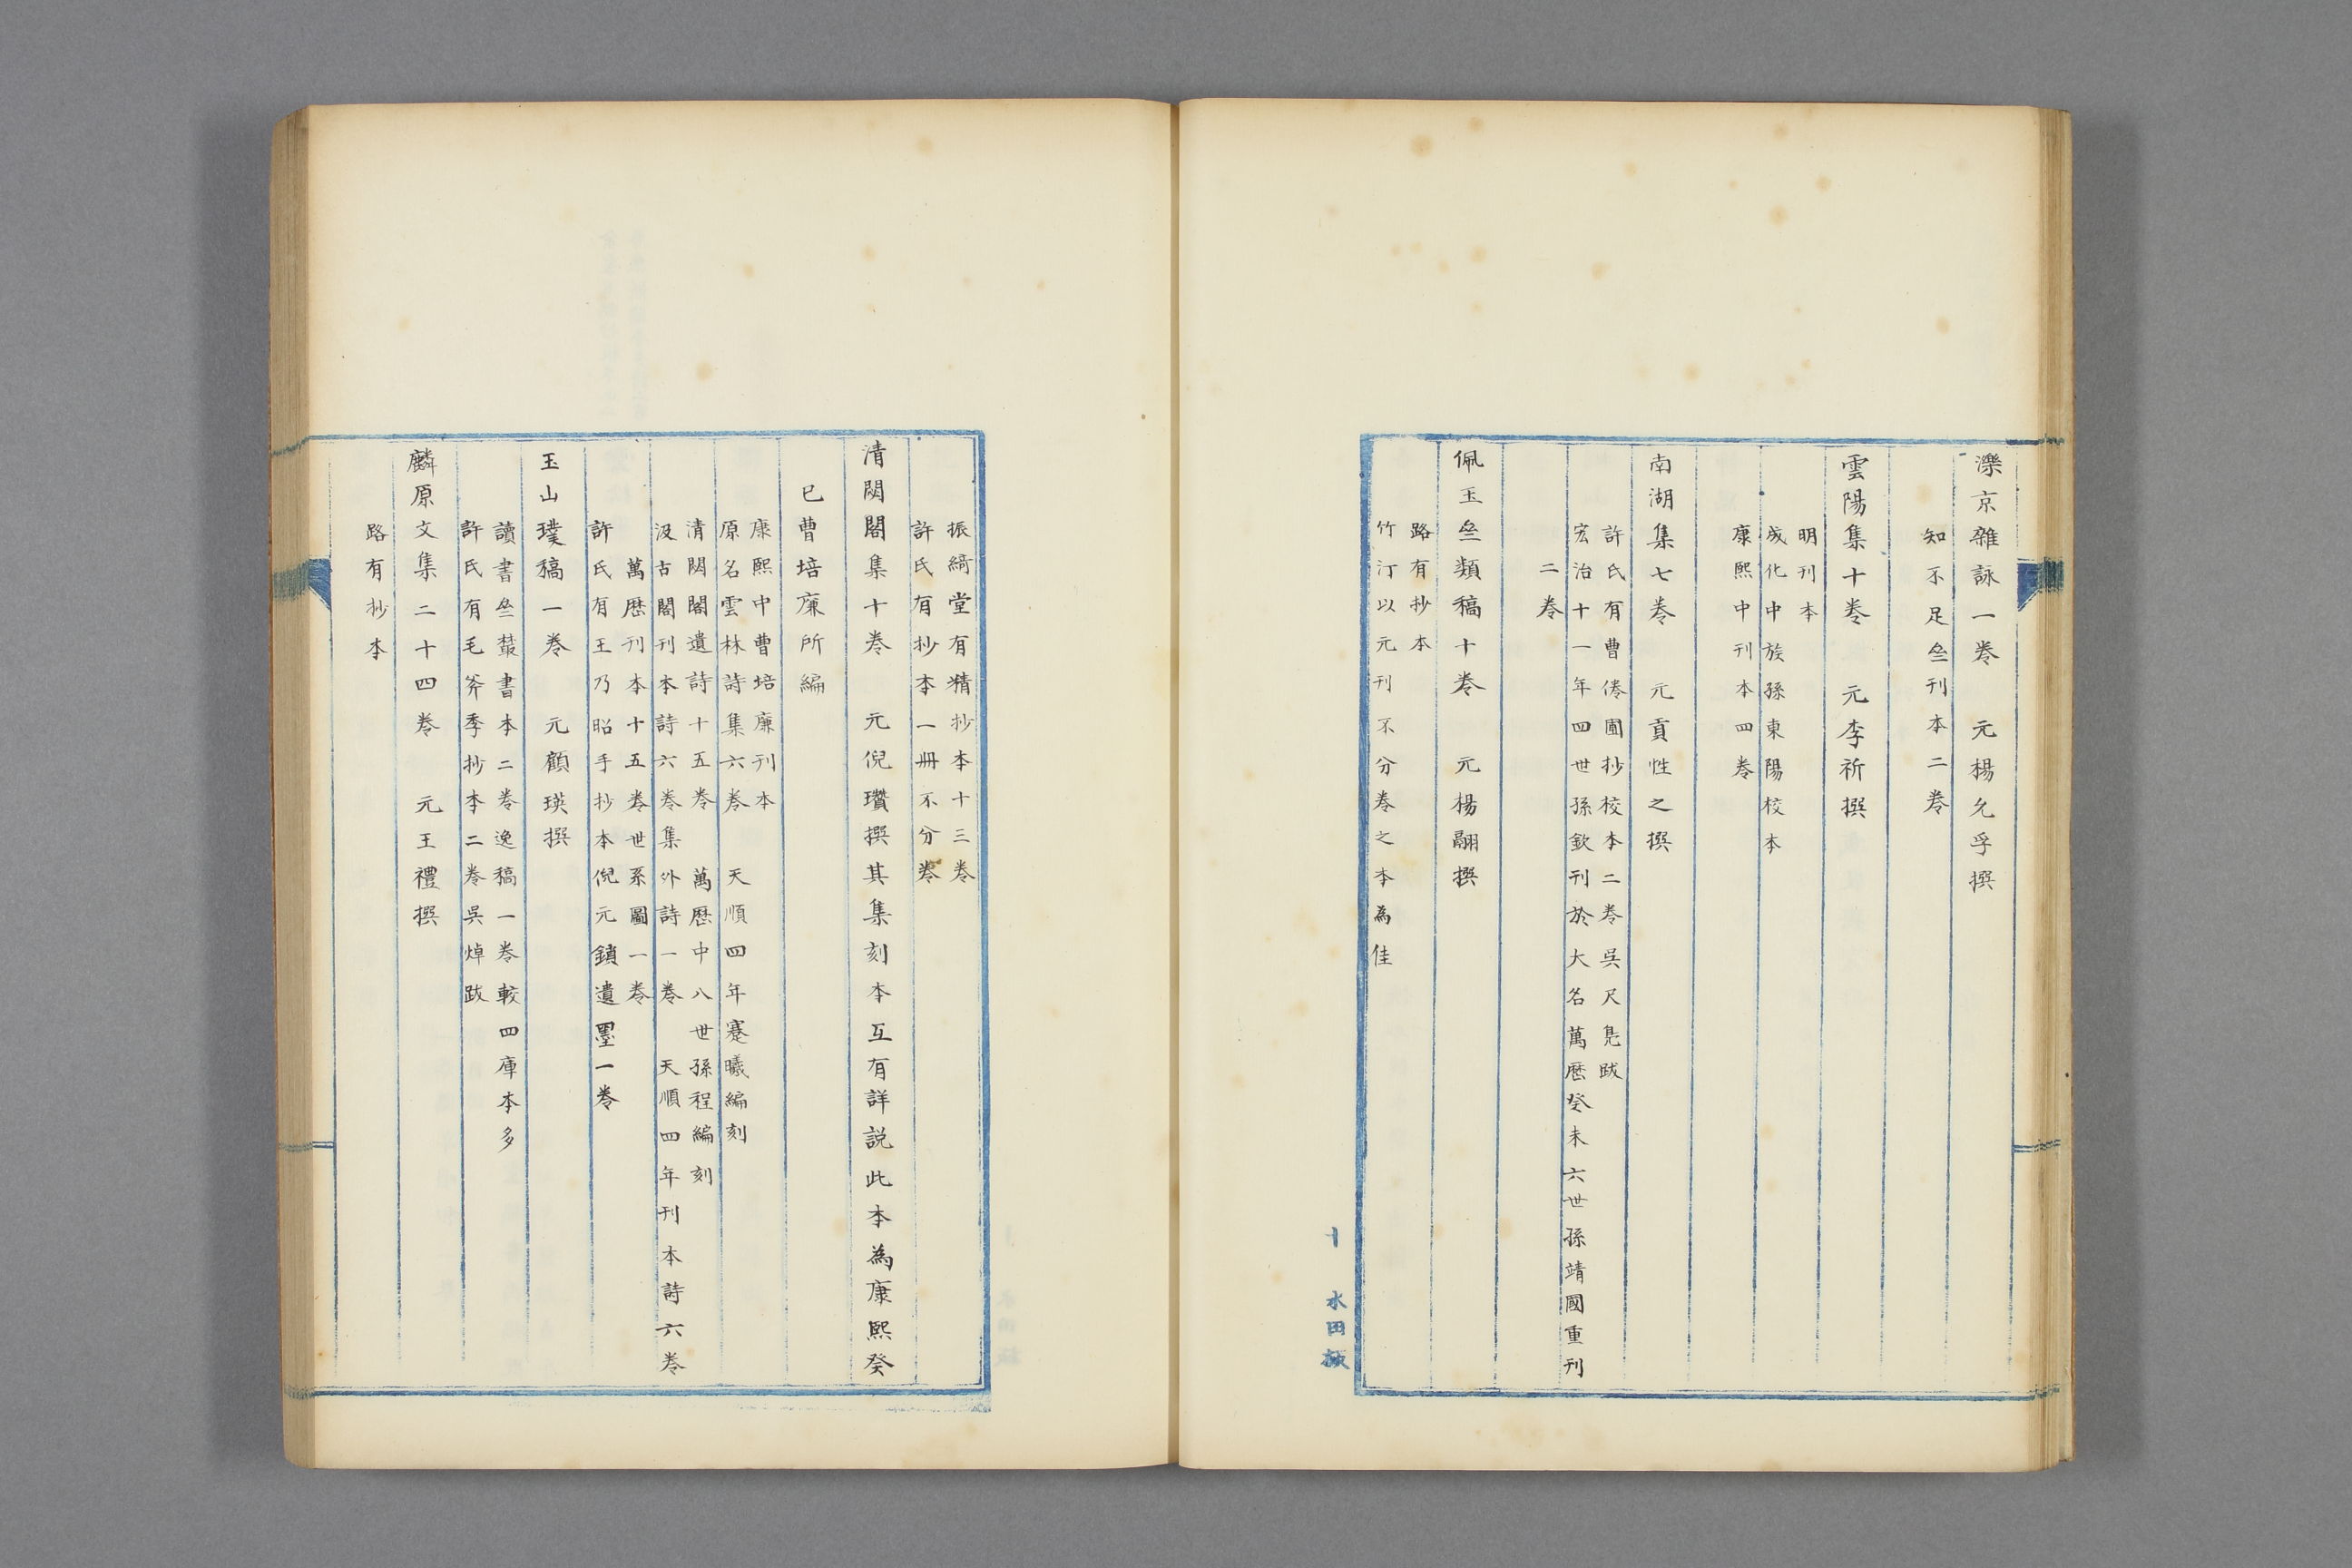 灤京雜詠一卷　元楊允孚撰
知不足叁刊本二卷
雲陽集十卷　元李祈撰
明刊本
成化中族孫東陽校本
康熙中刊本四卷
南湖集七卷　元貢性之撰
許氏有曹倦圃抄校本二卷吳尺鳧跋
宏治十一年四世孫欽刊於大名萬歷癸未六世孫靖國重刊
二卷
佩玉叁類稿十卷　元楊翮撰
路有抄本
竹汀以元刊不分卷之本為佳
十　水田
振綺堂有精抄本十三卷
許氏有抄本一冊不分卷
清閟閣集十卷　元倪瓚撰其集刻本互有詳説此本為康熙癸
巳曹培廉所編
康熙中曹培廉刊本
原名雲林詩集六卷　天順四年蹇曦編刻
清閟閣遺詩十五卷　萬歷中八世孫程編刻
汲古閣刊本詩六卷集外詩一卷　天順四年刊本詩六卷
萬歷刊本十五卷世系圖一卷
許氏有王乃昭手抄本倪元鎮遺墨一卷
玉山璞稿一卷　元顧瑛撰
讀書叁䕺書本二卷逸稿一卷較四庫本多
許氏有毛斧季抄本二卷吳焯跋
麟原文集二十四卷　元王禮撰
路有抄本